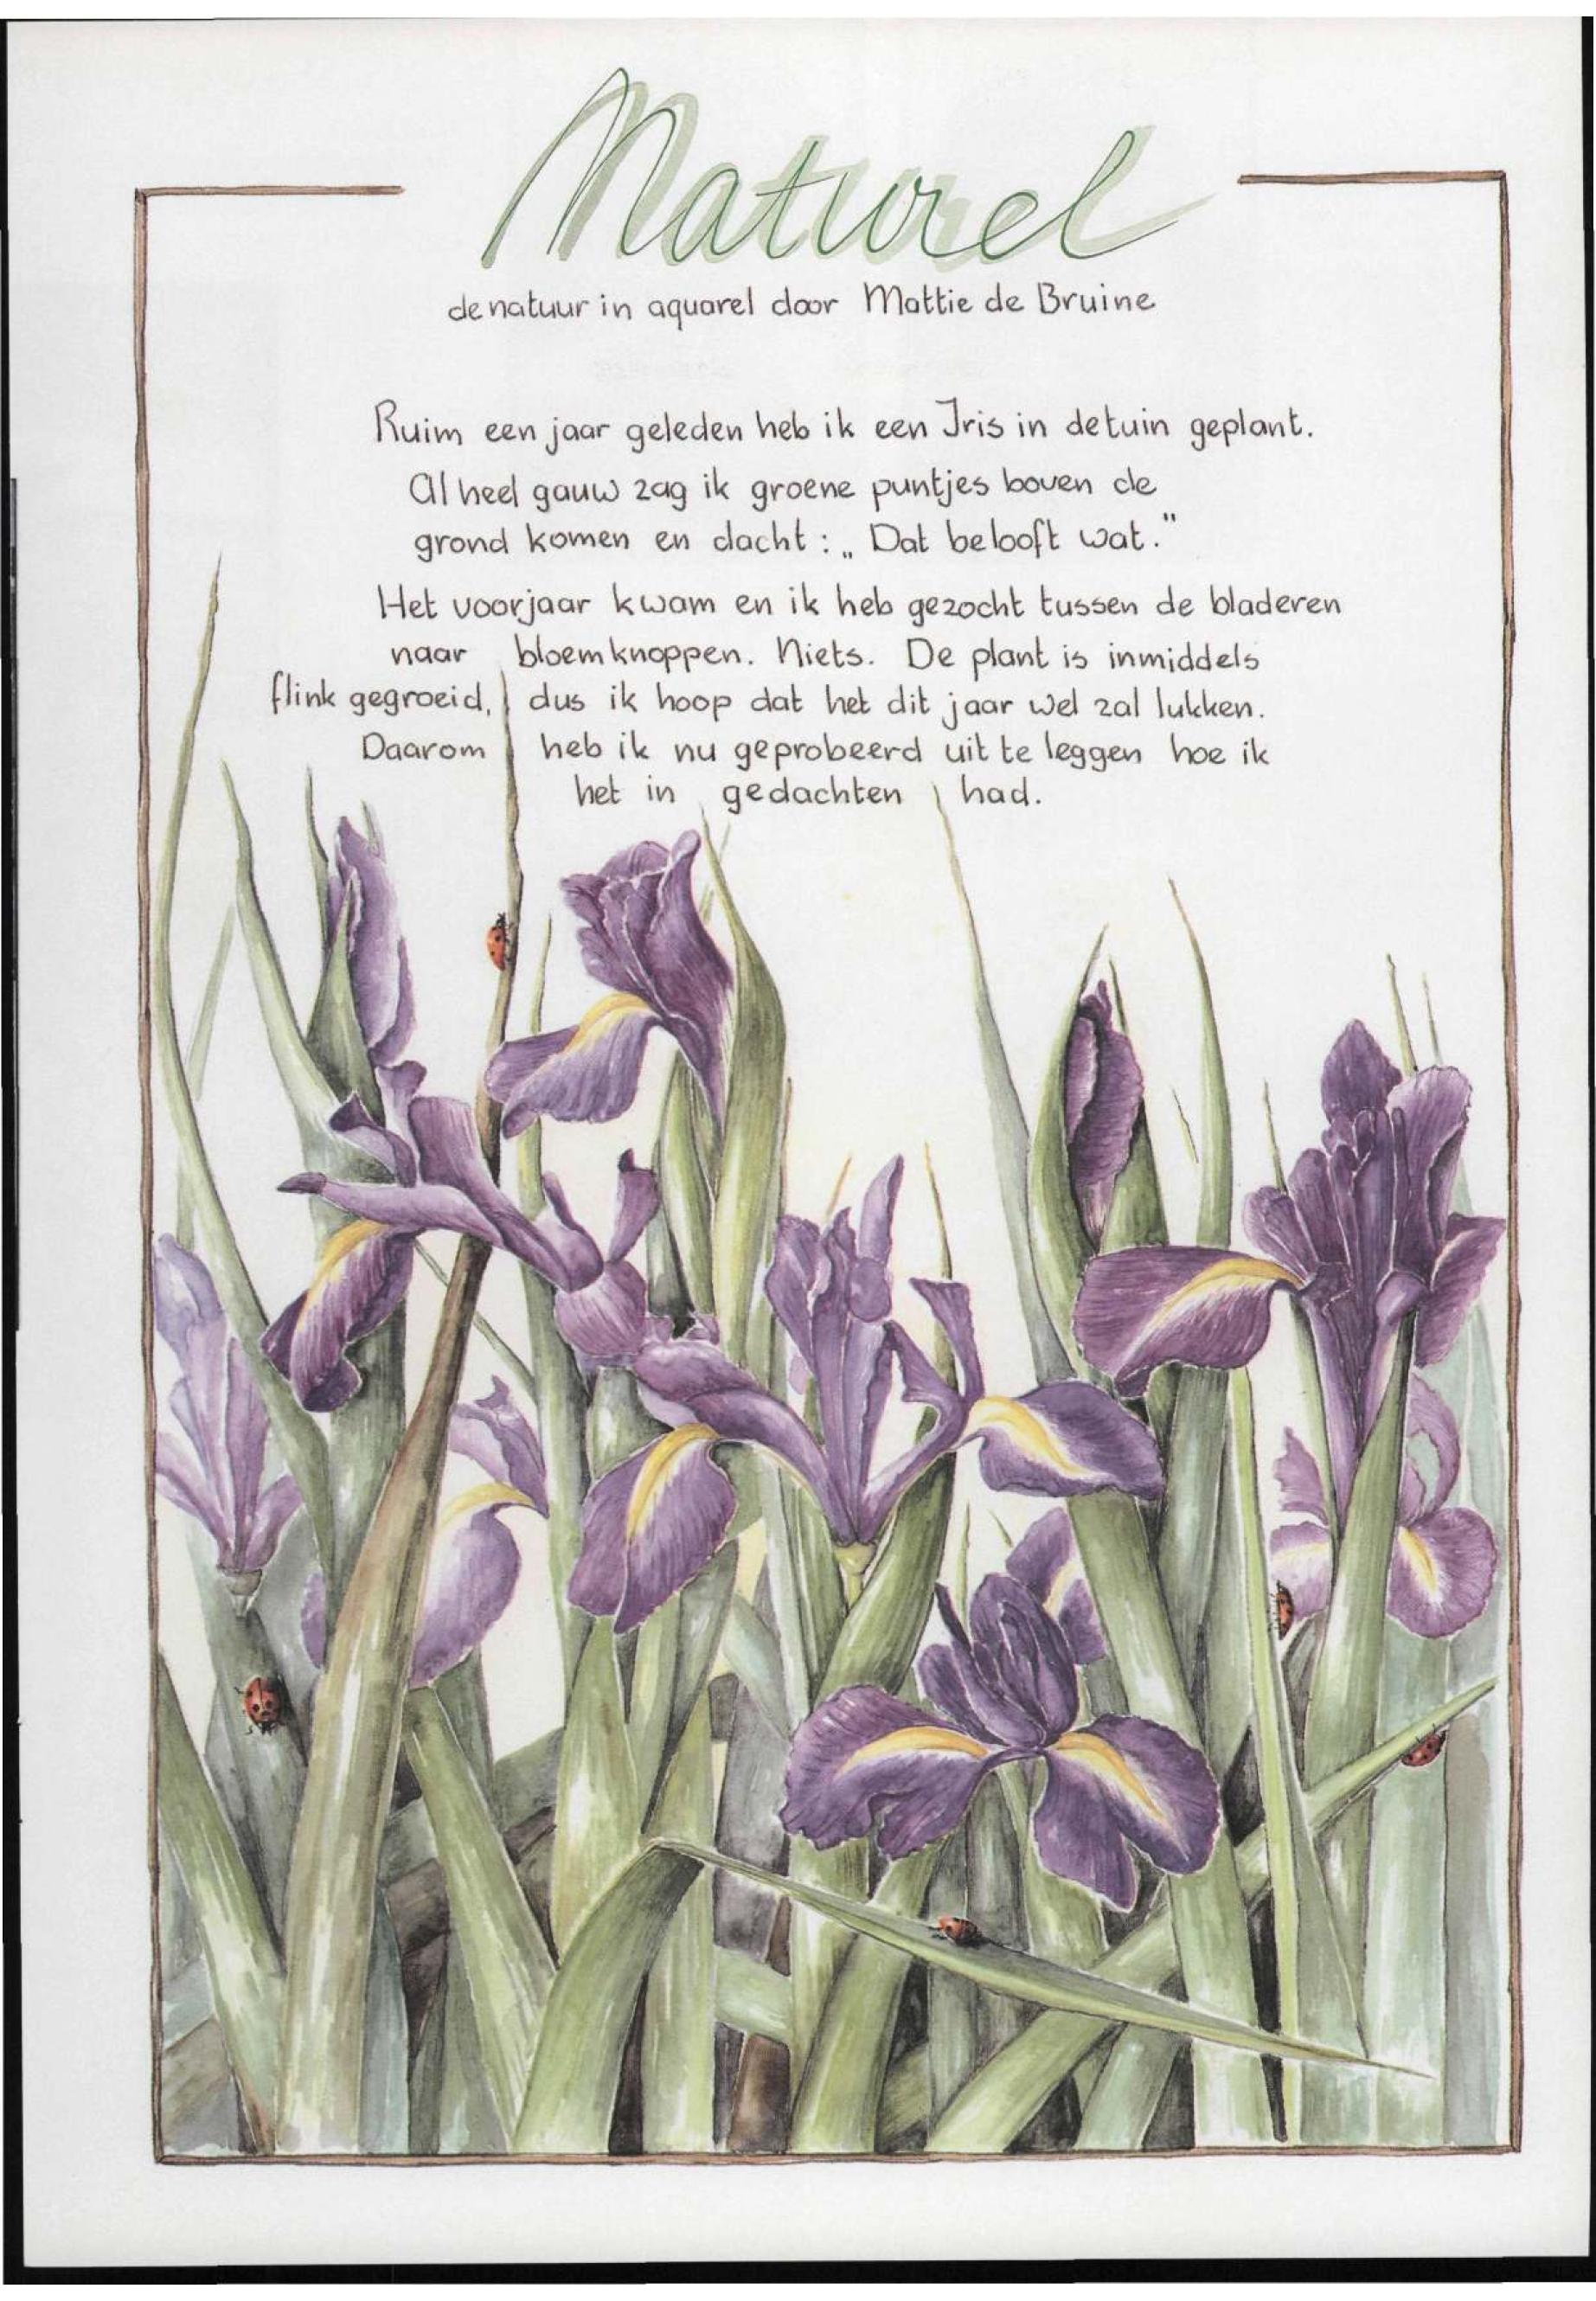 Naturel
de natuur in aquarel door Mattie de Bruine
Ruim een jaar geleden heb ik een Iris in de tuin geplant.
Al heel gauw zag ik groene puntjes boven de
grond komen en dacht: „Dat belooft wat."
Het voorjaar kwam en ik heb gezocht tussen de bladeren
naar bloemknoppen. Niets. De plant is inmiddels
flink gegroeid, dus ik hoop dat het dit jaar wel zal lukken.
Daarom heb ik nu geprobeerd uit te leggen hoe ik
het in gedachten had.